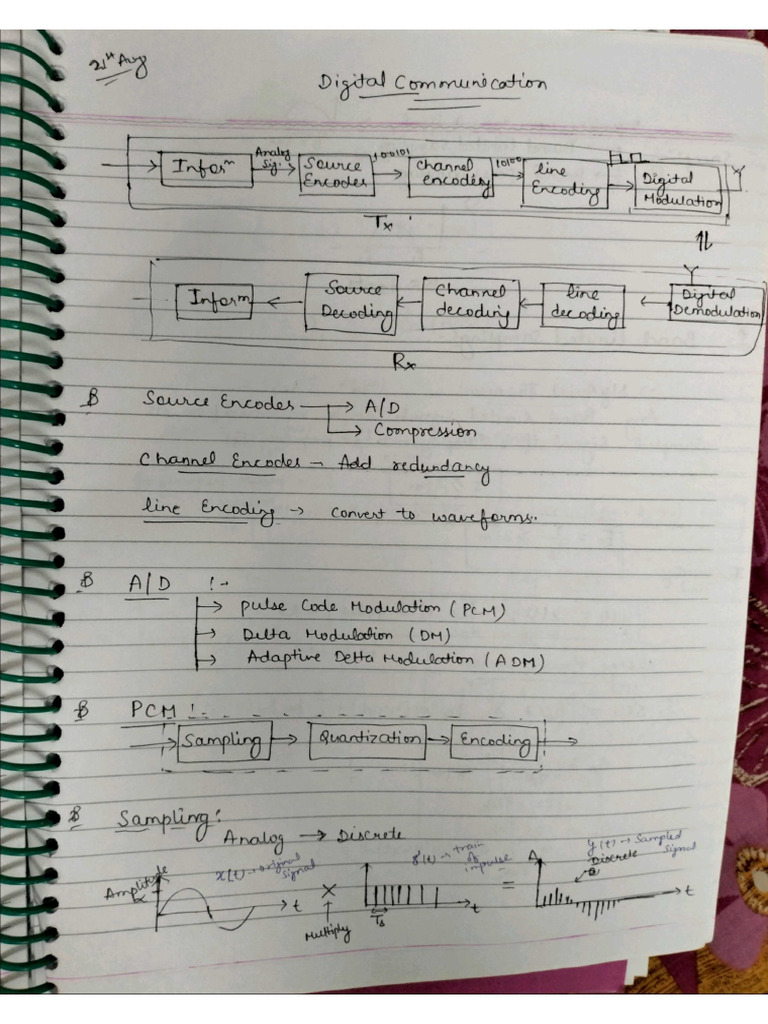 21st Aug
Digital Communication
Inform Analog Sig. Source Encodes 100101 Channel encodes 10100 line Encoding Digital Modulation
Tx
Inform Source Decoding Channel decoding line decoding Digital Demodulation
Rx
Source Encodes → A/D
→ Compression
Channel Encodes → Add redundancy
line Encoding → Convert to waveforms.
A/D :-
→ Pulse Code Modulation (PCM)
→ Delta Modulation (DM)
→ Adaptive Delta Modulation (ADM)
PCM :-
Sampling → Quantization → Encoding →
Sampling :
Analog → Discrete
Amplitude x(t) → original signal t × Multiply δ(t) → train of impulse Ts t = A y(t) → Sampled Signal Discrete t